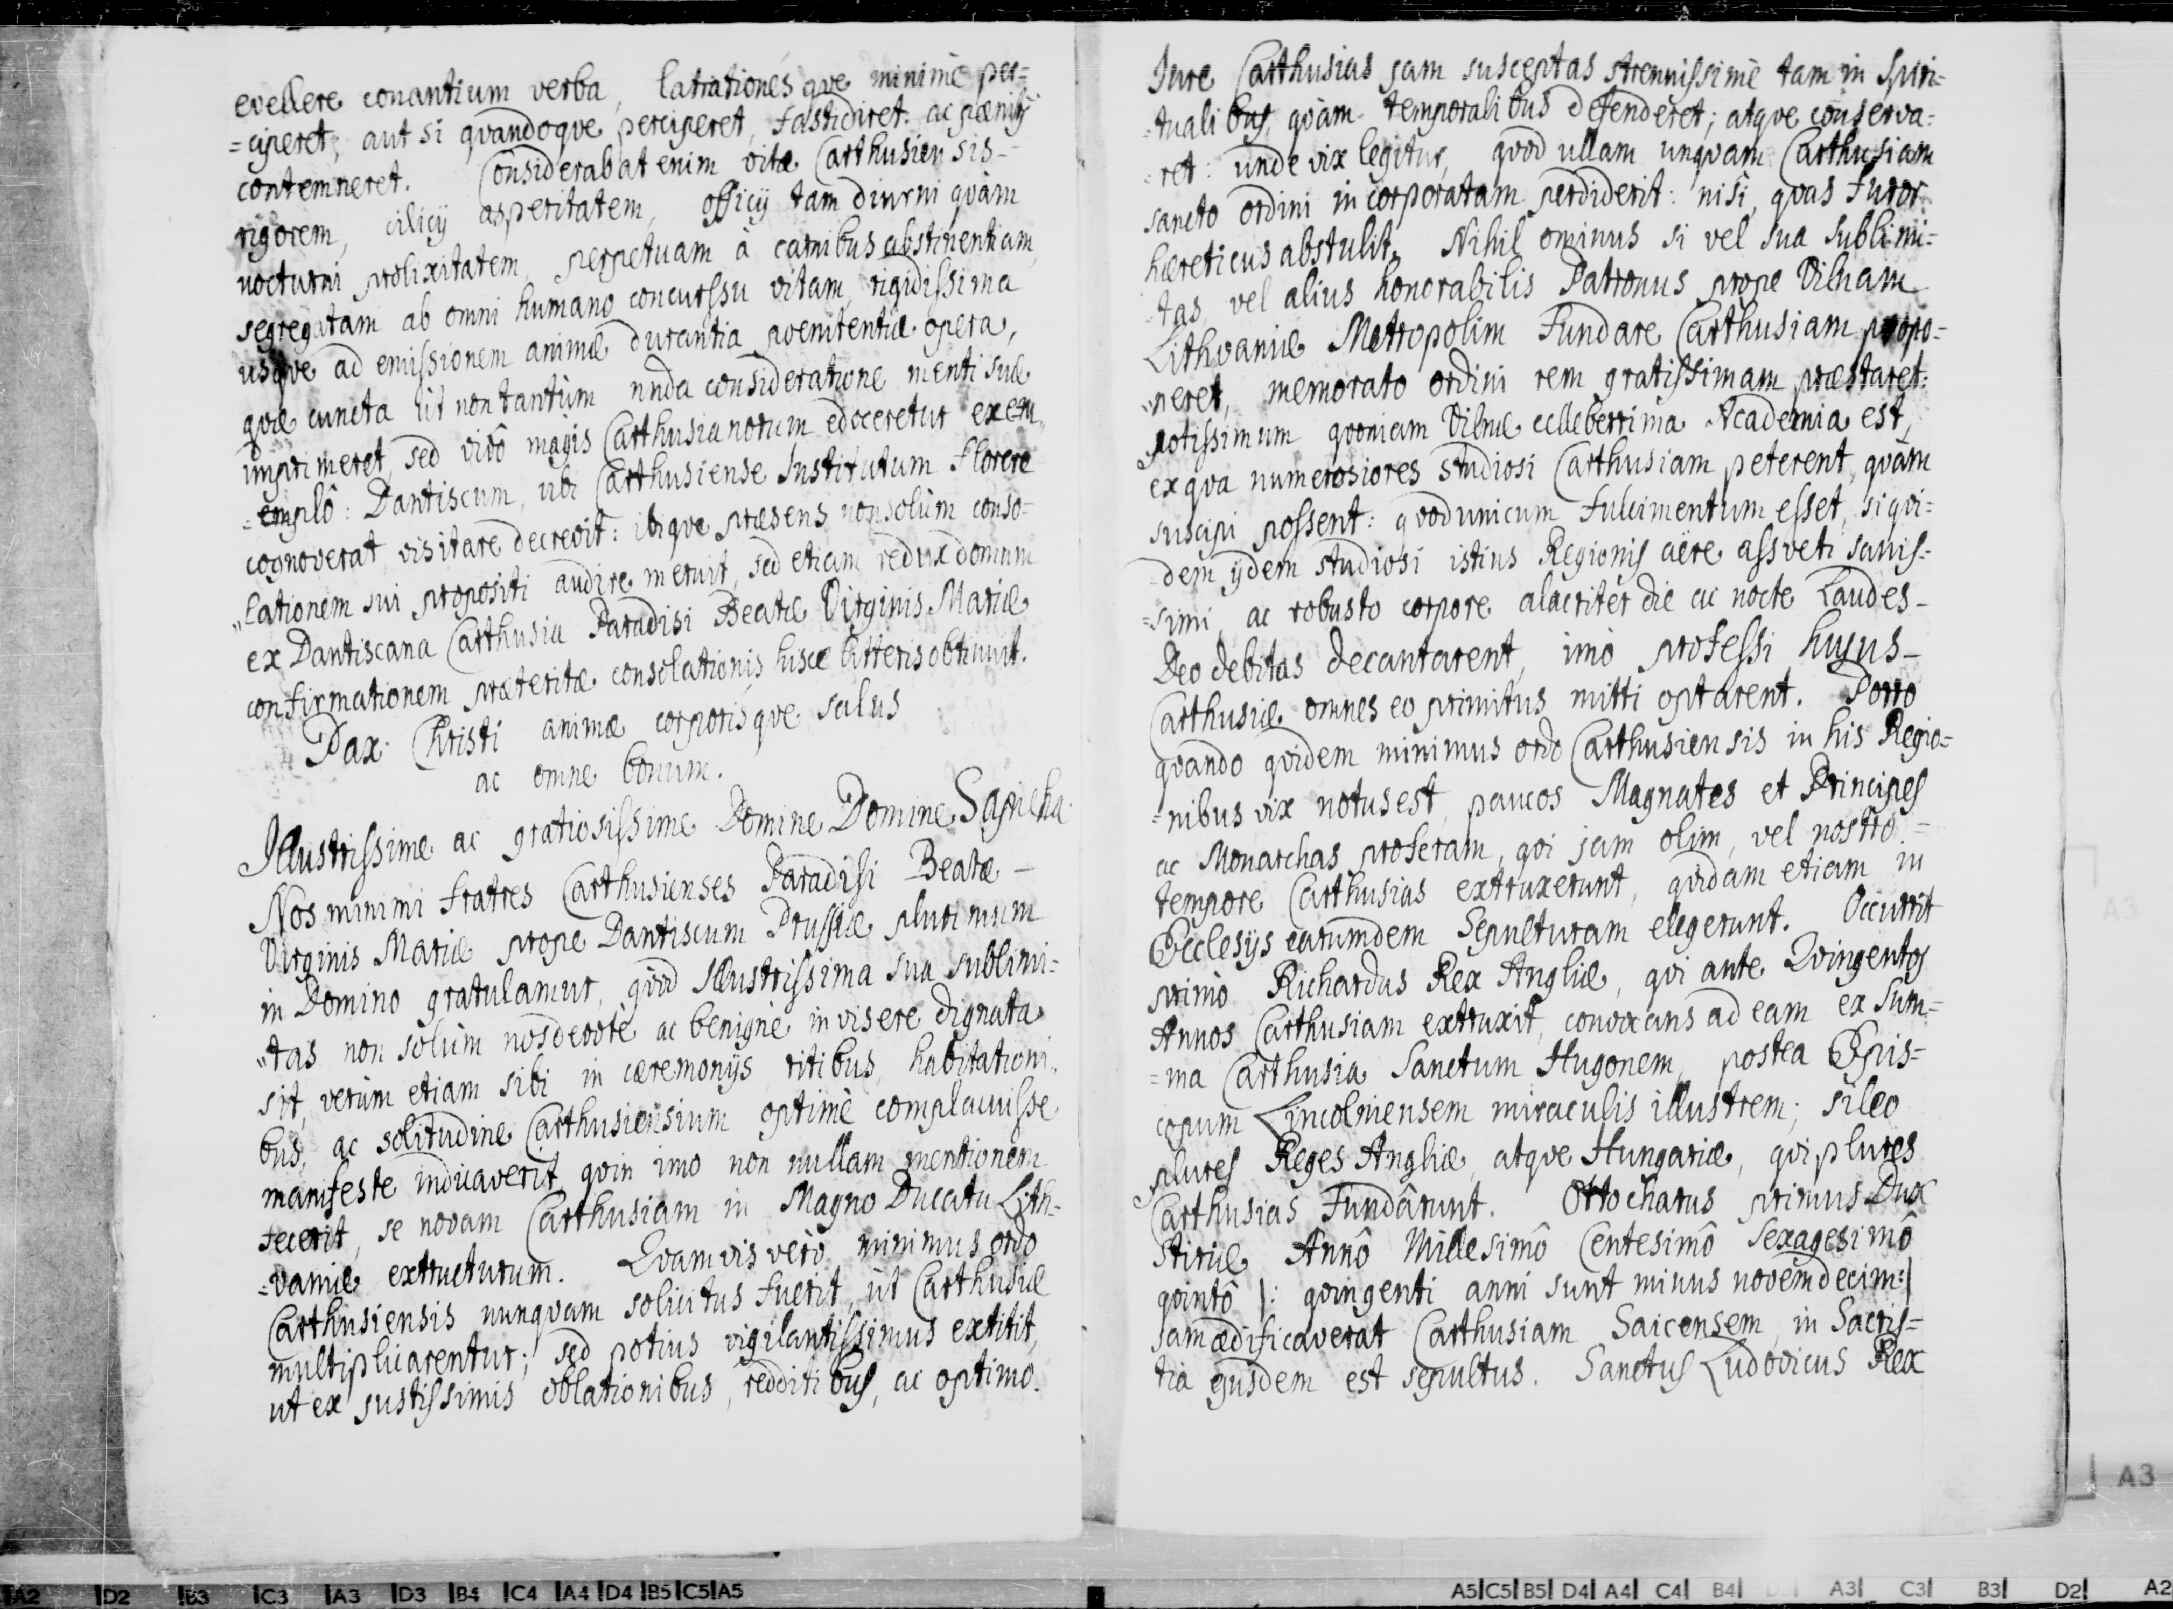 evellere conantium verba, latrationesqve minimè per=
=ciperet, aut si qvandoqve perciperet, fastidiret. ac pænitÿ
contemneret. Considerabat enim vitæ Carthusiensis-
rigorem, cilicÿ asperitatem, officÿ tam diurni qvàm
nocturni prolixitatem, perpetuam à carnibus abstinentiam,
segregatam ab omni humano concurssu vitam, rigidissima
usqve ad emissionem animæ durantia pœnitentiæ opera,
qvæ cuncta ut non tantùm nuda consideratione menti suæ
imprimeret, sed vivô magis Carthusianorum edoceretur exem,
=emplô: Dantiscum, ubi Carthusiense Institutum florere
cognoverat visitare decrevit: ibiqve præsens non solùm conso=
„lationem sui propositi audire meruit, sed etiam redux domum
ex Dantiscana Carthusia Paradisi Beatæ Virginis Mariæ
confirmationem præteritæ consolationis hisce litteris obtinuit.
Pax Christi animæ corporisqve salus
ac omne bonum.
Illustrissime ac gratiosissime Domine Domine Sapieha.
Nos minimi fratres Carthusienses Paradisi Beatæ -
Virginis Mariæ prope Dantiscum Prussiæ plurimum
in Domino gratulamur, qvòd Illustrissima sua sublimi=
„tas non solùm nos devotè ac benignè invisere dignata
sit, verùm etiam sibi in cæremonÿs, ritibus, habitationi,
bus, ac solitudine Carthusiensium optimè complacuisse
manifeste indicaverit, qvin imo non nullam mentionem
fecerit, se novam Carthusiam in Magno Ducatu Lith=
=vaniæ extructurum. Qvamvis verò minimus ordo
Carthusiensis nunqvam solicitus fuerit, ut Carthusiæ
multiplicarentur; sed potius vigilantissimus extitit,
ut ex justissimis oblationibus, redditibus, ac optimo.
Jure Carthusias jam susceptas strenuissimè tam in spiri=
=tualibus, qvàm temporalibus defenderet; atqve conserva=
=ret: unde vix legitur, qvod ullam unqvam Carthusiam
sancto ordini incorporatam perdiderit: nisi, qvas furor
hæreticus abstulit. Nihil ominus si vel sua sublimi=
=tas, vel alius honorabilis Patronus prope Vilnam
Lithvaniæ Metropolim fundare Carthusiam propo=
„neret, memorato ordini rem gratissimam præstaret:
potissimum qvoniam Vilnæ celleberrima Academia est,
ex qva numerosiores studiosi Carthusiam peterent, qvàm
suscipi possent: qvod unicum fulcimentum esset, siqvi=
=dem ÿdem studiosi istius Regionis aëre assveti sanis=
=simi, ac robusto corpore alacriter die ac nocte Laudes-
Deo debitas decantarent, imò professi hujus-
Carthusiæ omnes eo primitus mitti optarent. Porro
qvando qvidem minimus ordo Carthusiensis in his Regio=
=nibus vix notus est, paucos Magnates et Principes
ac Monarchas proferam, qvi jam olim, vel nostro =
tempore Carthusias extruxerunt, qvidam etiam in
Ecclesÿs earumdem Sepulturam elegerunt. Occurrit
primò Richardus Rex Angliæ, qvi ante Qvingentos
Annos Carthusiam extruxit, convocans ad eam ex Sum=
=ma Carthusia Sanctum Hugonem, postea Epis=
copum Lincolniensem miraculis illustrem; sileo
plures Reges Angliæ, atqve Hungariæ, qvi plures
Carthusias Fundârunt. Ottocharus primus Dux
Stiriæ Annô Millesimô Centesimô Sexagesimô
qvintô |: qvingenti anni sunt minus novemdecim:|
jam ædificaverat Carthusiam Saicensem, in Sacris=
tia ejusdem est sepultus. Sanctus Ludovicus Rex
A3
A3
A2 D2 B3 C3 A3 D3 B4 C4 A4 D4 B5 C5 A5
A5 C5 B5 D4 A4 C4 B4 A3 C3 B3 D2 A2